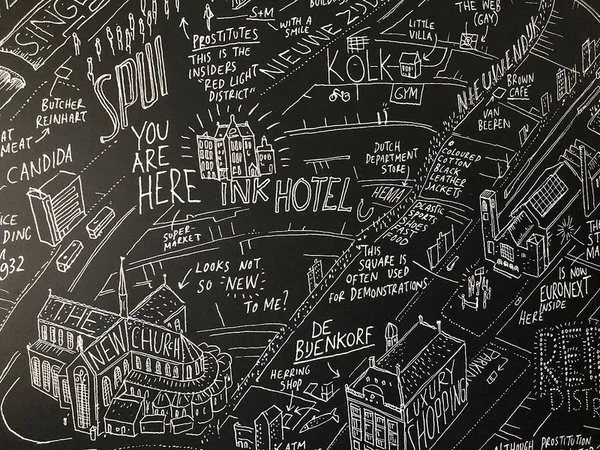 SINGEL
S+M
WITH A
SMILE
BUILD
NIEUWE ZIJ
LITTLE
VILLA
THE WEB
(GAY)
PROSTITUTES
THIS IS THE
INSIDERS
"RED LIGHT
DISTRICT"
KOLK
GYM
NIEUWENDIJK
BROWN
CAFÉ
VAN
BEEREN
BUTCHER
REINHART
SPUI
AT
MEAT
CANDIDA
YOU
ARE
HERE
INK HOTEL
DUTCH
DEPARTMENT
STORE
HEMA
COLOURED
COTTON
BLACK
LEATHER
JACKETS
PLASTIC
SPORTS
SHOES
FAST
FOOD
ICE
DINC
1932
SUPER-
MARKET
LOOKS NOT
SO "NEW"
TO ME?
THIS
SQUARE IS
OFTEN USED
FOR DEMONSTRATIONS
IS NOW
EURONEXT
HERE INSIDE
THE
NEW CHURCH
DE
BIJENKORF
HERRING
SHOP
LUXURY
SHOPPING
ATM
RED
DISTR
ALTHOUGH PROSTITUTION